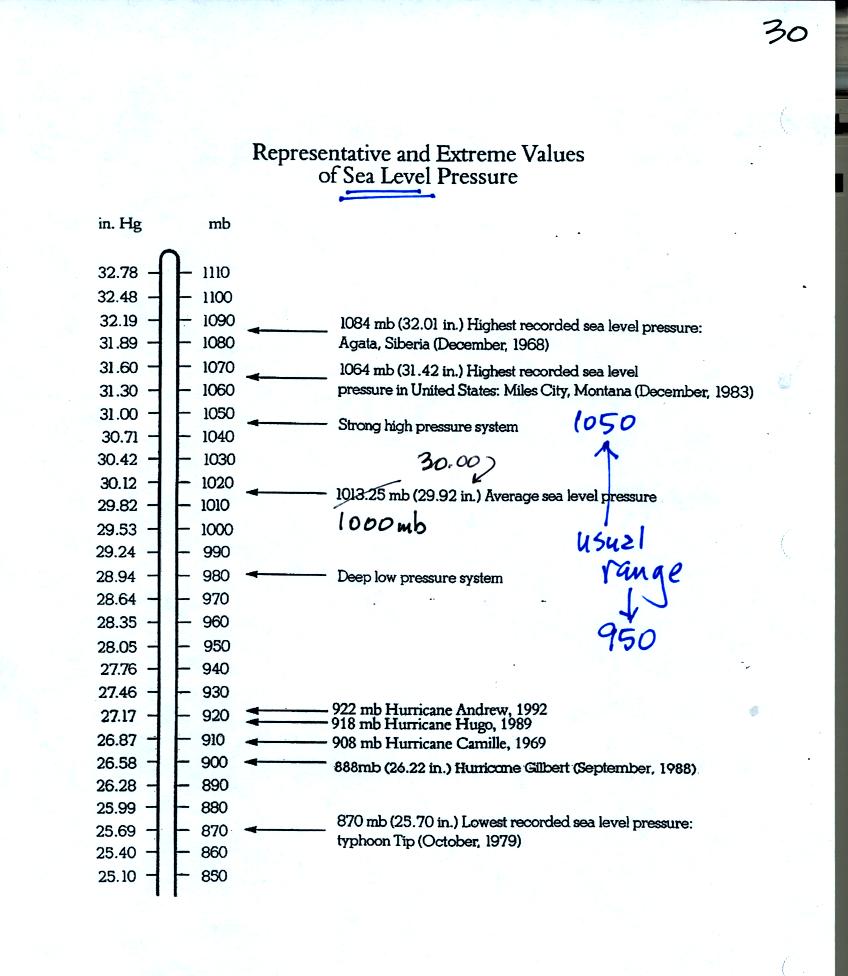 30
Representative and Extreme Values
of Sea Level Pressure
in. Hg mb
32.78 1110
32.48 1100
32.19 1090
1084 mb (32.01 in.) Highest recorded sea level pressure:
31.89 1080
Agata, Siberia (December, 1968)
31.60 1070
1064 mb (31.42 in.) Highest recorded sea level
31.30 1060
pressure in United States: Miles City, Montana (December, 1983)
31.00 1050
Strong high pressure system
1050
30.71 1040
30.42 1030
30.00
30.12 1020
1013.25 mb (29.92 in.) Average sea level pressure
29.82 1010
1000mb
29.53 1000
usual
range
950
29.24 990
28.94 980
Deep low pressure system
28.64 970
28.35 960
28.05 950
27.76 940
27.46 930
922 mb Hurricane Andrew, 1992
27.17 920
918 mb Hurricane Hugo, 1989
26.87 910
908 mb Hurricane Camille, 1969
26.58 900
888mb (26.22 in.) Hurricane Gilbert (September, 1988)
26.28 890
25.99 880
870 mb (25.70 in.) Lowest recorded sea level pressure:
25.69 870
typhoon Tip (October, 1979)
25.40 860
25.10 850